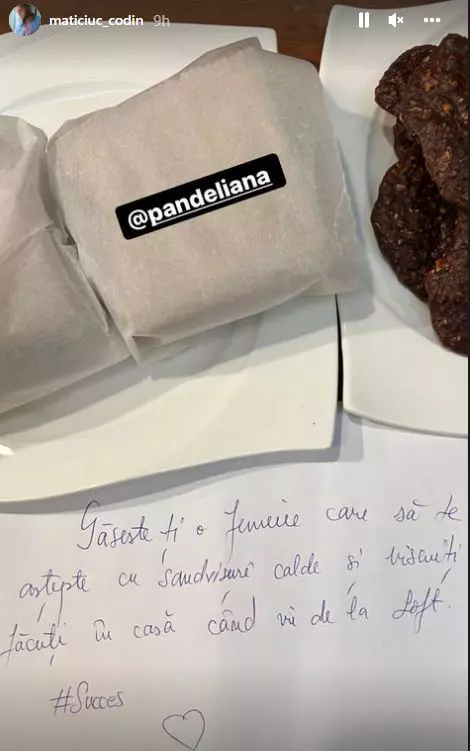 maticiuc_codin 9h
@pandeliana
Găsește ți o femeie care să te
aștepte cu sandvișuri calde și biscuiți
făcuți în casă când vii de la Loft.
#Succes